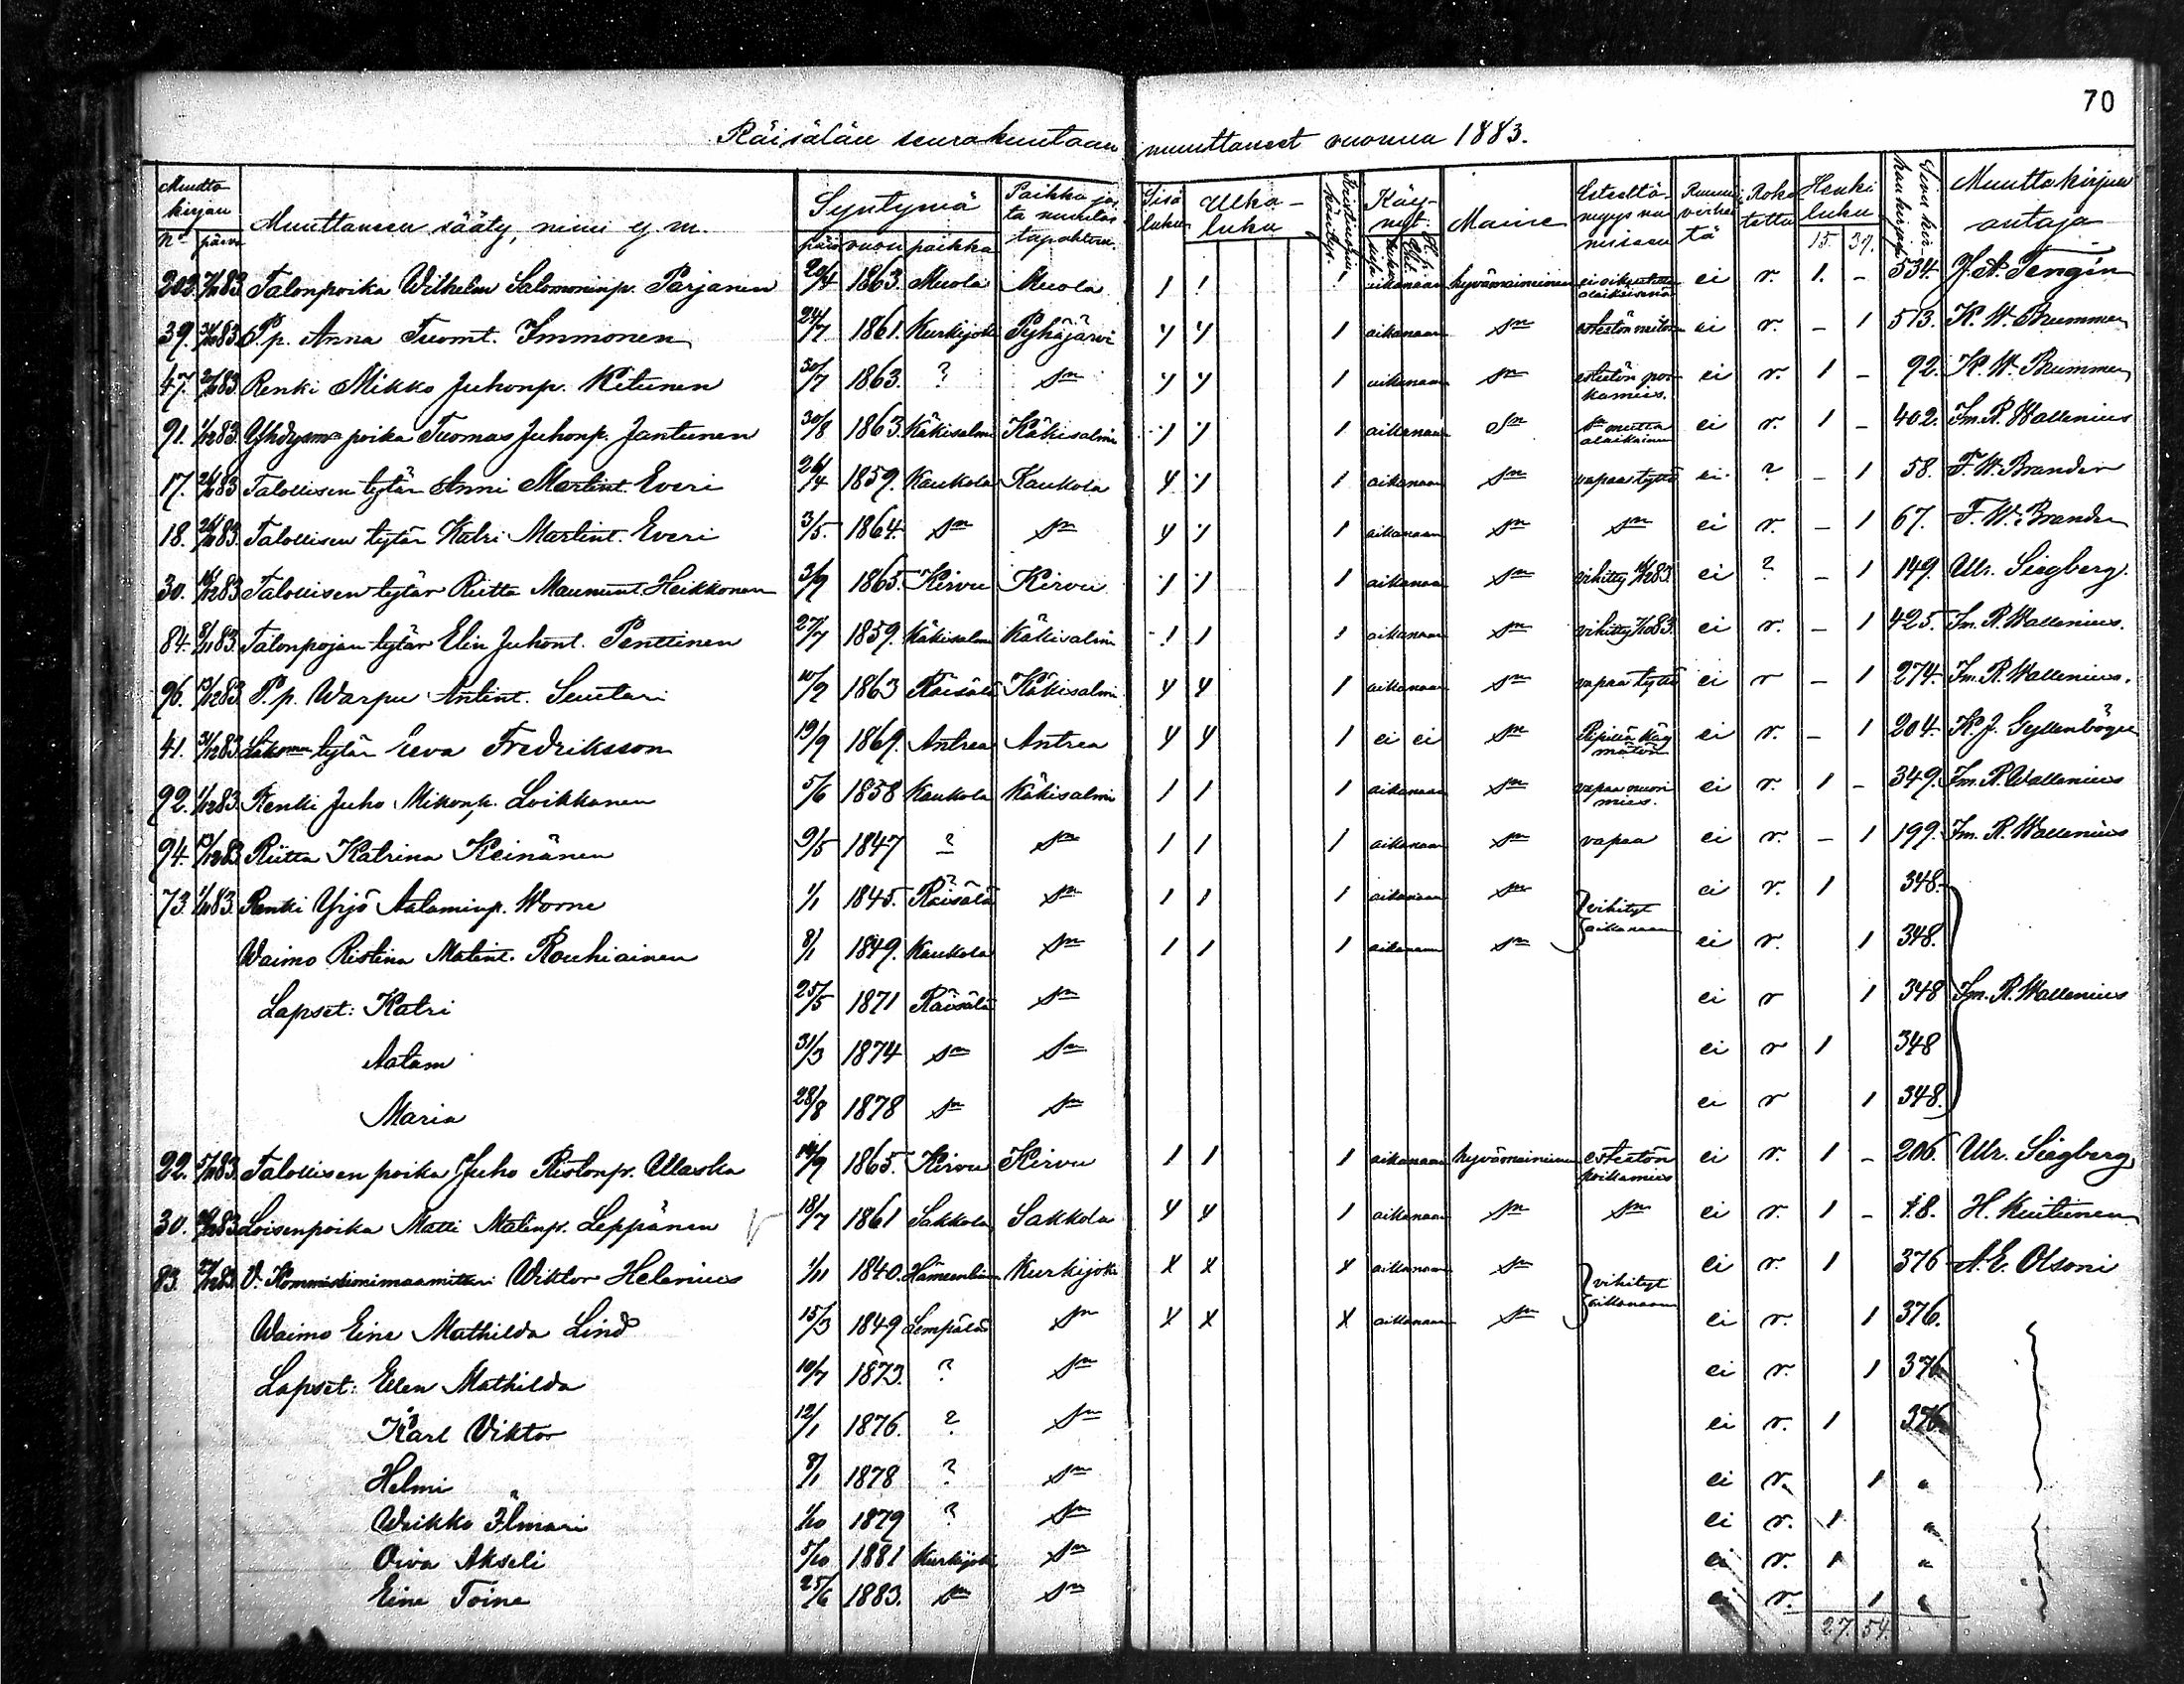 70
Räisälän seurakuntaan muuttaneet vuonna 1883.
Muutto kirjan Muuttaneen sääty, nimi y. m. Syntymä Paikka jos ta muutos tapahtuu. Sisä luku Ulkoluku Kristinopin käsitys. Käynyt Maine Esteettömyys nai misiin Ruumin virheitä Roko tettu Henki luku Muuttokirjan antaja
No päivä päivä vuosi paikka 15. 37.
203. 83 Talonpoika Wilhelm Salomoninp. Parjanen 20/4 1863. Muola Muola 1 1 1 aikanaan hyvämaineinen ei r. 1. - 534. J. A. Tengin
39. 83 P.p. Anna Tuomt. Immonen 24/7 1861. Kurkijoki Pyhäjärvi 4 4 1 aikanaan sm ei r. - 1 513. K. W. Brummer
47. 83 Renki Mikko Juhonp. Kitunen 30/7 1863. ? sm 4 4 1 aikanaan sm esteetön poi kamies. ei r. 1 - 92. K. W. Brummer
91. 1/12 83 Yhdysma poika Tuomas Juhonp. Jantunen 30/8 1863 Käkisalmi Käkisalmi 1 1 1 aikanaan sm sm mutta alaikäinen ei r. 1 - 402. Im. R. Wallenius
17. 83 Talollisen tytär Anni Martint. Everi 26/4 1859. Kaukola Kaukola 4 1 1 aikanaan sm vapaa tyttö ei ? - 1 58. F. W. Brander
18. 83 Talollisen tytär Katri Martint. Everi 3/5. 1864. sm sm 4 1 1 aikanaan sm sm ei r. - 1 67. F. W. Brander
30. 83 Talollisen tytär Riitta Maununt. Heikkonen 3/9 1865. Kirvu Kirvu 1 1 1 aikanaan sm vihitty 83. ei ? - 1 149. Ulr. Siegberg.
84. 83 Talonpojan tytär Elin Juhont. Penttinen 27/7 1859. Käkisalmi Käkisalmi 1 1 1 aikanaan sm vihitty 83. ei r. - 1 425. Im. R. Wallenius.
96. 83 P.p. Warpu Antint. Suutari 10/9 1863 Räisälä Käkisalmi 4 4 1 aikanaan sm vapaa tyttö ei r - 1 274. Im. R. Wallenius.
41. 83 tytär Eeva Fredriksson 19/9 1869. Antrea Antrea 4 4 1 ei ei sm Ripillä käy mätön ei r. - 1 204. K. J. Gyllenbögel
92. 1/12 83 Renki Juho Mikonp. Loikkanen 5/6 1858 Kaukola Käkisalmi 1 1 1 aikanaan sm vapaa nuori mies. ei r. 1 - 349. Im. R. Wallenius
94. 83 Riitta Katrina Keinänen 9/5 1847 ? sm 1 1 1 aikanaan sm vapaa ei r. - 1 199. Im. R. Wallenius
73. 83. Renki Yrjö Aataminp. Worne 1/1 1845. Räisälä sm 1 1 1 aikanaan sm vihityt aikanaan ei r. 1 348.
Waimo Ristina Matint. Rouhiainen 8/1 1849. Kaukola sm 1 1 1 aikanaan sm ei r. 1 348.
Lapset: Katri 25/5 1871 Räisälä sm ei r 1 348 Im. R. Wallenius
Aatam 31/3 1874 sm sm ei r 1 348
Maria 28/8 1878 sm sm ei r 1 348.
22. 83. Talollisen poika Juho Ristonp. Ullaska 14/9 1865. Kirvu Kirvu 1 1 1 aikanaan hyvämaineinen esteetön poikamies ei r. 1 - 206. Ulr. Siegberg
30. 83 Loisenpoika Matti Matinp. Leppänen 18/7 1861 Sakkola Sakkola 4 4 1 aikanaan sm sm ei r. 1 - 18. H. Kuitunen
83. 83 V. Kommissionimaamittari Wiktor Helenius 1/11 1840. Hämeenlinna Kurkijoki X X X aikanaan sm vihityt aikanaan ei r. 1 376 A. E. Olsoni
Waimo Eine Mathilda Lind 15/3 1849 Lempäälä sm X X X aikanaan sm ei r. 1 376.
Lapset: Ellen Mathilda 10/7 1873. ? sm ei r. 1 376
Karl Viktor 12/1 1876. ? sm ei r. 1 376
Helmi 8/1 1878 ? sm ei r. 1 "
Weikko Ilmari 1/10 1879 ? sm ei r. 1 "
Oiva Akseli 5/10 1881 Kurkijoki sm ei r. 1 "
Eine Toine 25/6 1883. sm sm ei r. 1 "
27. 54.